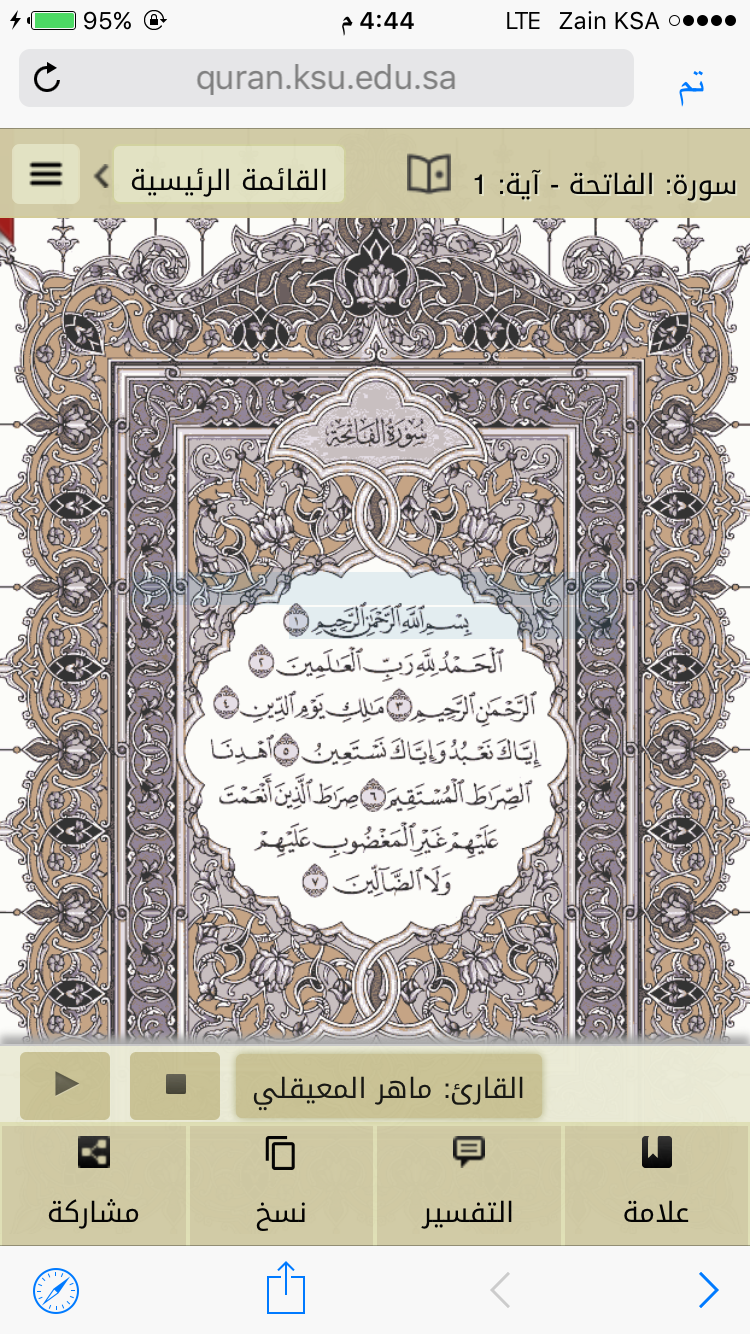 95% 4:44 م LTE Zain KSA
quran.ksu.edu.sa
تم
سورة: الفاتحة - آية: 1
القائمة الرئيسية
سُورَةُ الفَاتِحَةِ
بِسْمِ ٱللَّهِ ٱلرَّحْمَٰنِ ٱلرَّحِيمِ ١
ٱلْحَمْدُ لِلَّهِ رَبِّ ٱلْعَٰلَمِينَ ٢
ٱلرَّحْمَٰنِ ٱلرَّحِيمِ ٣ مَٰلِكِ يَوْمِ ٱلدِّينِ ٤
إِيَّاكَ نَعْبُدُ وَإِيَّاكَ نَسْتَعِينُ ٥ ٱهْدِنَا
ٱلصِّرَٰطَ ٱلْمُسْتَقِيمَ ٦ صِرَٰطَ ٱلَّذِينَ أَنْعَمْتَ
عَلَيْهِمْ غَيْرِ ٱلْمَغْضُوبِ عَلَيْهِمْ
وَلَا ٱلضَّآلِّينَ ٧
القارئ: ماهر المعيقلي
علامة
التفسير
نسخ
مشاركة